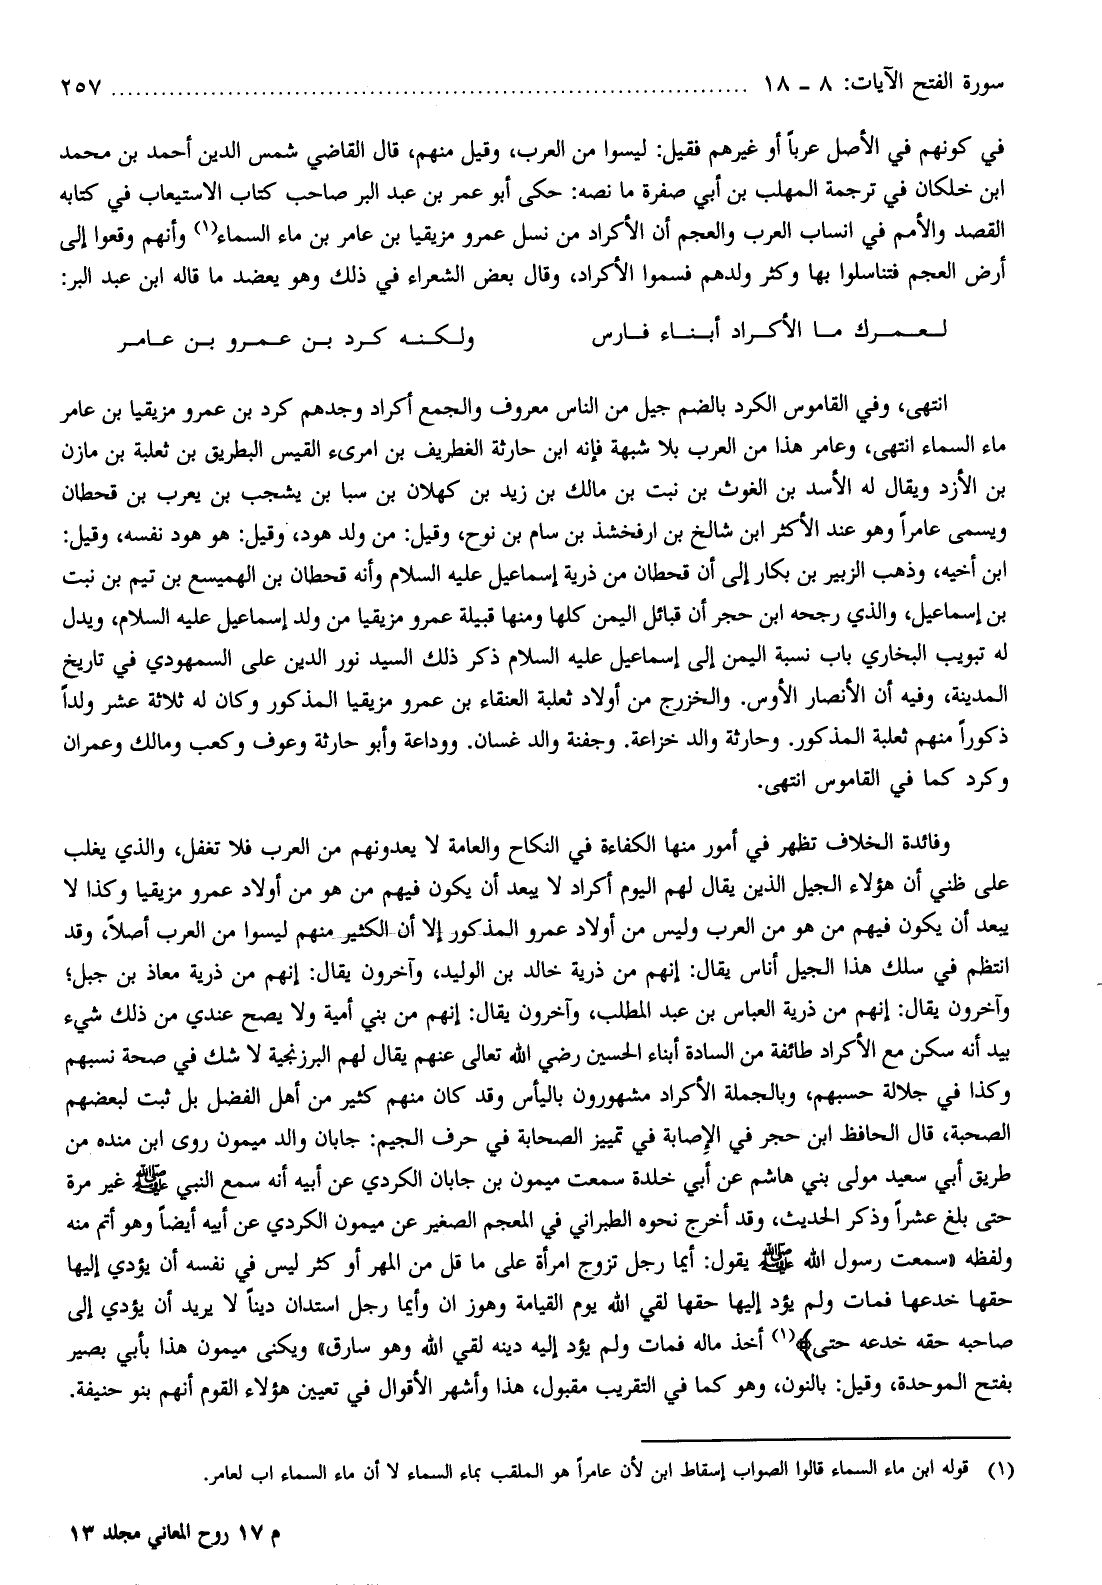 سورة الفتح الآيات: ٨ ـ ١٨ ........................................................................ ٢٥٧
في كونهم في الأصل عرباً أو غيرهم فقيل: ليسوا من العرب، وقيل منهم، قال القاضي شمس الدين أحمد بن محمد
ابن خلكان في ترجمة المهلب بن أبي صفرة ما نصه: حكى أبو عمر بن عبد البر صاحب كتاب الاستيعاب في كتابه
القصد والأمم في انساب العرب والعجم أن الأكراد من نسل عمرو مزيقيا بن عامر بن ماء السماء(١) وأنهم وقعوا إلى
أرض العجم فتناسلوا بها وكثر ولدهم فسموا الأكراد، وقال بعض الشعراء في ذلك وهو يعضد ما قاله ابن عبد البر:
لعمرك ما الأكراد أبناء فارس ولكنه كرد بن عمرو بن عامر
انتهى، وفي القاموس الكرد بالضم جيل من الناس معروف والجمع أكراد وجدهم كرد بن عمرو مزيقيا بن عامر
ماء السماء انتهى، وعامر هذا من العرب بلا شبهة فإنه ابن حارثة الغطريف بن امرىء القيس البطريق بن ثعلبة بن مازن
بن الأزد ويقال له الأسد بن الغوث بن نبت بن مالك بن زيد بن كهلان بن سبا بن يشجب بن يعرب بن قحطان
ويسمى عامراً وهو عند الأكثر ابن شالخ بن ارفخشذ بن سام بن نوح، وقيل: من ولد هود، وقيل: هو هود نفسه، وقيل:
ابن أخيه، وذهب الزبير بن بكار إلى أن قحطان من ذرية إسماعيل عليه السلام وأنه قحطان بن الهميسع بن تيم بن نبت
بن إسماعيل، والذي رجحه ابن حجر أن قبائل اليمن كلها ومنها قبيلة عمرو مزيقيا من ولد إسماعيل عليه السلام، ويدل
له تبويب البخاري باب نسبة اليمن إلى إسماعيل عليه السلام ذكر ذلك السيد نور الدين على السمهودي في تاريخ
المدينة، وفيه أن الأنصار الأوس. والخزرج من أولاد ثعلبة العنقاء بن عمرو مزيقيا المذكور وكان له ثلاثة عشر ولداً
ذكوراً منهم ثعلبة المذكور. وحارثة والد خزاعة. وجفنة والد غسان. ووداعة وأبو حارثة وعوف وكعب ومالك وعمران
وكرد كما في القاموس انتهى.
وفائدة الخلاف تظهر في أمور منها الكفاءة في النكاح والعامة لا يعدونهم من العرب فلا تغفل، والذي يغلب
على ظني أن هؤلاء الجيل الذين يقال لهم اليوم أكراد لا يبعد أن يكون فيهم من هو من أولاد عمرو مزيقيا وكذا لا
يبعد أن يكون فيهم من هو من العرب وليس من أولاد عمرو المذكور إلا أن الكثير منهم ليسوا من العرب أصلاً، وقد
انتظم في سلك هذا الجيل أناس يقال: إنهم من ذرية خالد بن الوليد، وآخرون يقال: إنهم من ذرية معاذ بن جبل؛
وآخرون يقال: إنهم من ذرية العباس بن عبد المطلب، وآخرون يقال: إنهم من بني أمية ولا يصح عندي من ذلك شيء
بيد أنه سكن مع الأكراد طائفة من السادة أبناء الحسين رضي الله تعالى عنهم يقال لهم البرزنجية لا شك في صحة نسبهم
وكذا في جلالة حسبهم، وبالجملة الأكراد مشهورون باليأس وقد كان منهم كثير من أهل الفضل بل ثبت لبعضهم
الصحبة، قال الحافظ ابن حجر في الإصابة في تمييز الصحابة في حرف الجيم: جابان والد ميمون روى ابن منده من
طريق أبي سعيد مولى بني هاشم عن أبي خلدة سمعت ميمون بن جابان الكردي عن أبيه أنه سمع النبي ﷺ غير مرة
حتى بلغ عشراً وذكر الحديث، وقد أخرج نحوه الطبراني في المعجم الصغير عن ميمون الكردي عن أبيه أيضاً وهو أتم منه
ولفظه «سمعت رسول الله ﷺ يقول: أيما رجل تزوج امرأة على ما قل من المهر أو كثر ليس في نفسه أن يؤدي إليها
حقها خدعها فمات ولم يؤد إليها حقها لقي الله يوم القيامة وهوز ان وأيما رجل استدان ديناً لا يريد أن يؤدي إلى
صاحبه حقه خدعه حتى﴾(١) أخذ ماله فمات ولم يؤد إليه دينه لقي الله وهو سارق» ويكنى ميمون هذا بأبي بصير
بفتح الموحدة، وقيل: بالنون، وهو كما في التقريب مقبول، هذا وأشهر الأقوال في تعيين هؤلاء القوم أنهم بنو حنيفة.
(١) قوله ابن ماء السماء قالوا الصواب إسقاط ابن لأن عامراً هو الملقب بماء السماء لا أن ماء السماء اب لعامر.
م ١٧ روح المعاني مجلد ١٣